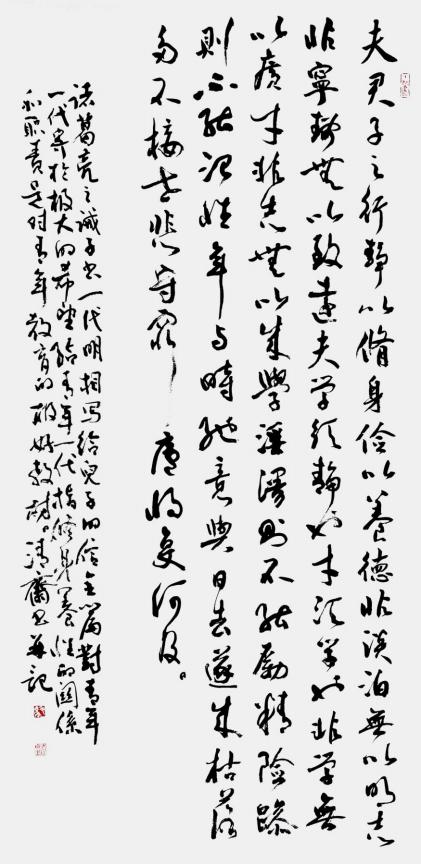 夫君子之行靜以脩身儉以養德非淡泊無以明志
非寧靜無以致遠夫学須靜也才須学也非学無
以廣才非志無以成學淫漫則不能勵精險躁
則不能治性年与時馳意與日去遂成枯落
多不接世悲守窮廬將复何及。
諸葛亮之誡子书一代明相写給兒子的信全篇對青年
一代寄於极大的希望給青年一代指修身養性的關係
和职责是对青年教育的极好教材。清齋书并記